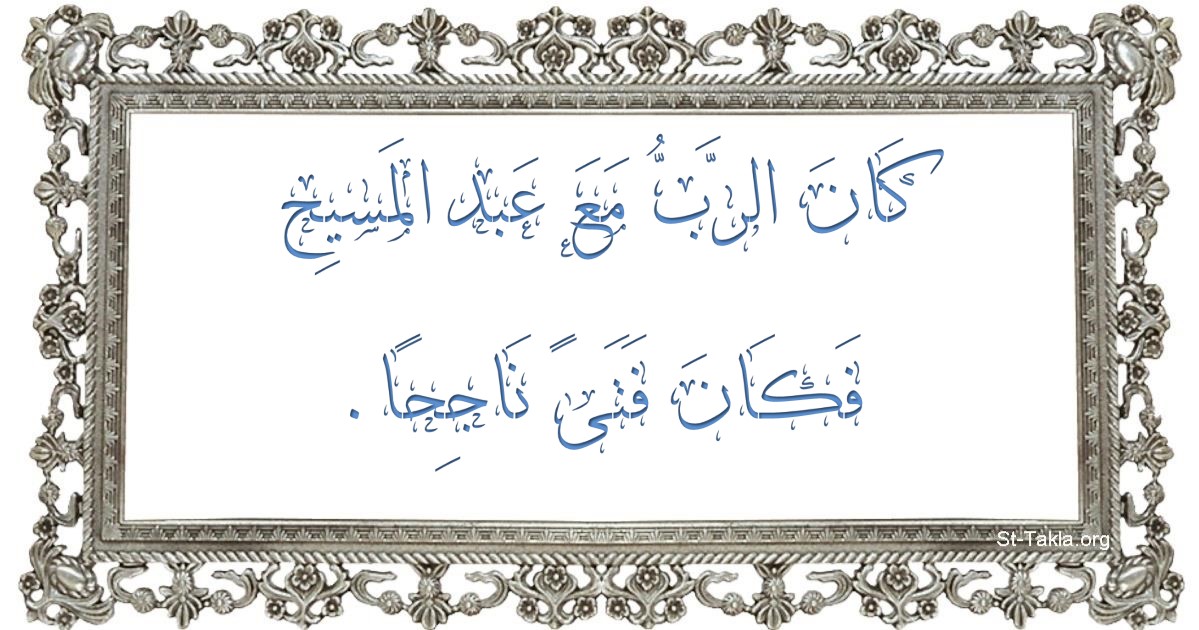 كَانَ الرَّبُّ مَعَ عَبْد الْمَسِيحِ
فَكَانَ فَتَىً نَاجِحًا .
St-Takla.org